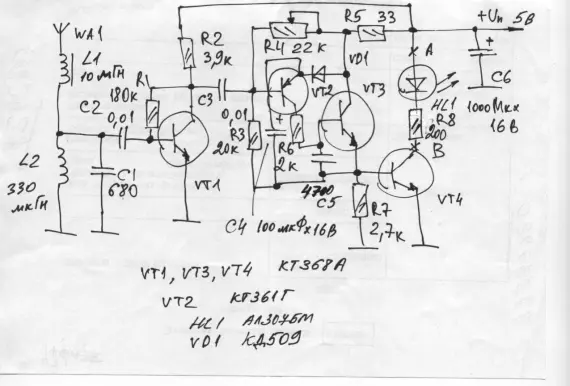 WA1
L1
10мГн
C2
0,01
R1
180к
L2
330
мкГн
C1
680
R2
3,9к
C3
0,01
VT1
R3
20к
R4 22к
R5 33
VD1
VT2
VT3
R6
2к
C4 100мкФх16В
4700
C5
R7
2,7к
A
HL1
R8
200
B
VT4
+Uп 5В
+
C6
1000Мкх
16В
VT1, VT3, VT4 КТ368А
VT2 КТ361Г
HL1 АЛ307БМ
VD1 КД509